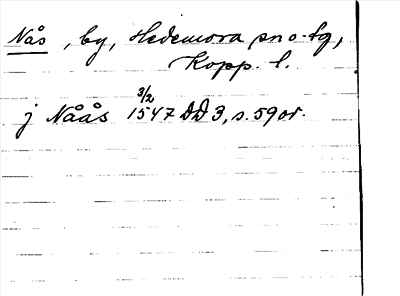 Nås, by, Hedemora sn o. tg,
Kopp. l.
j Nåås 3/2 1547 DD 3, s. 59 or.